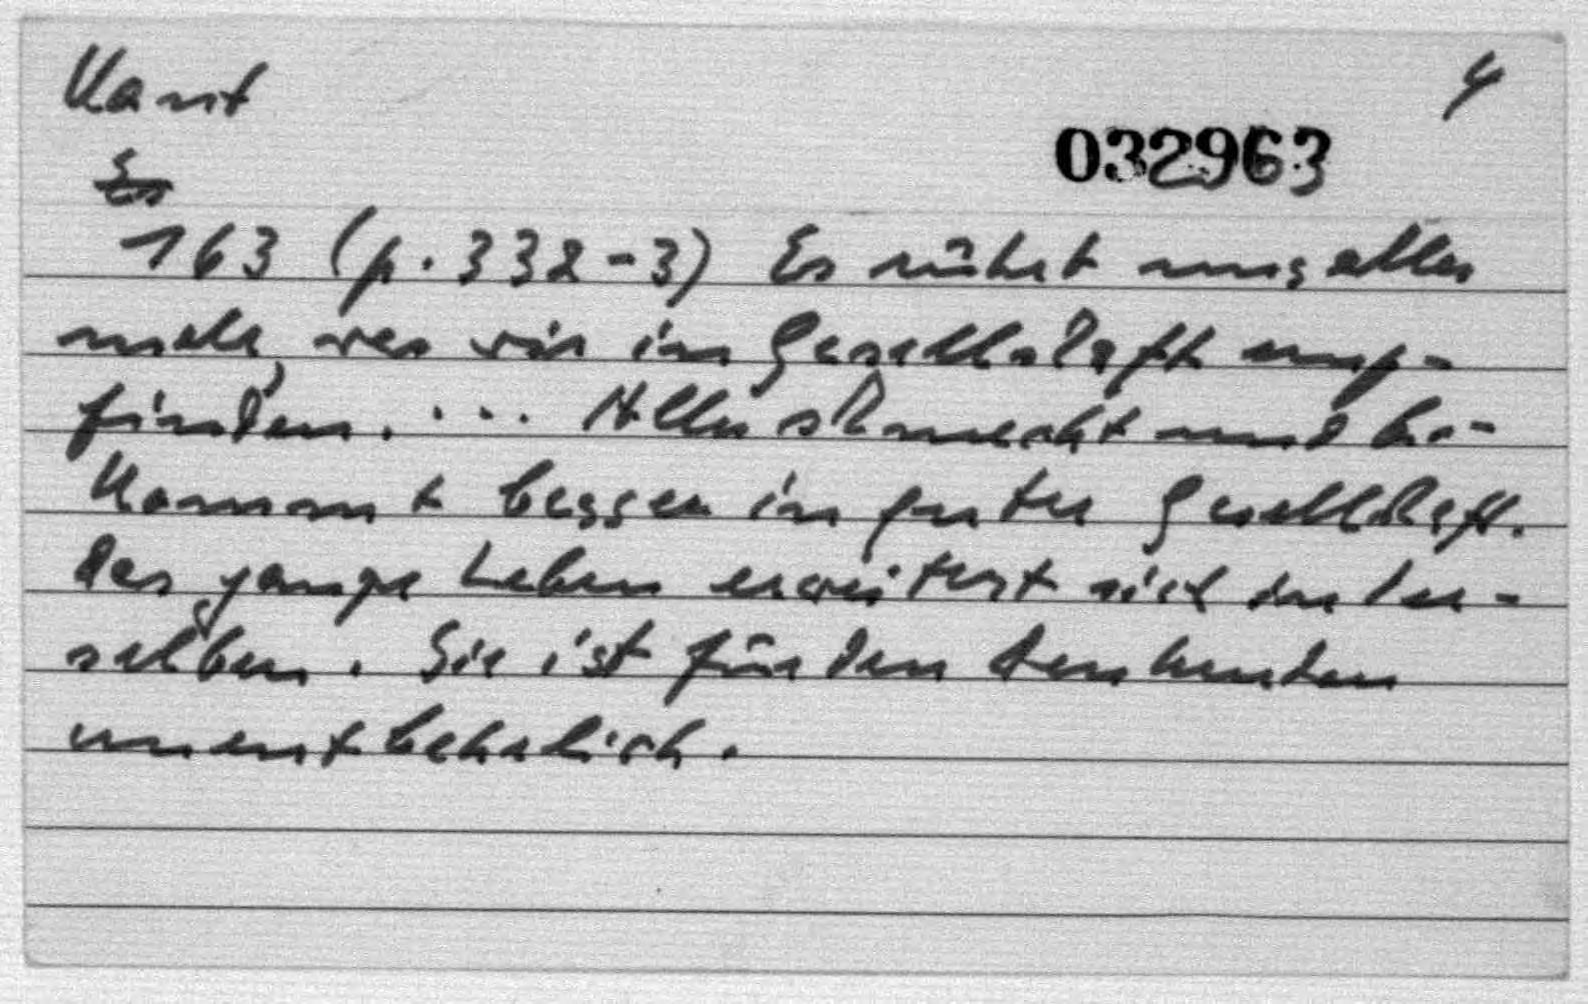 Kant 4
032963
Es
163 (p. 332-3) Es rührt uns alles
mehr, was wir in Gesellschaft emp-
finden. ... Alles schmeckt und be-
kommt besser in guter Gesellschaft.
Das ganze Leben erweitert sich in der-
selben. Sie ist für den denkenden
unentbehrlich.